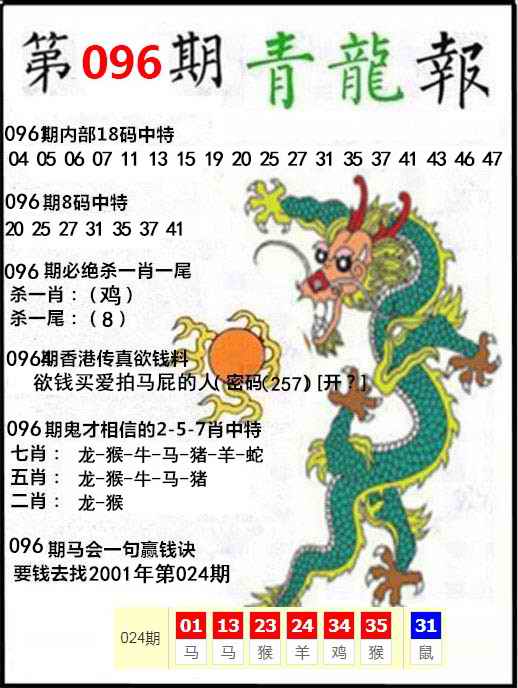 第096期青龍報
096期内部18码中特
04 05 06 07 11 13 15 19 20 25 27 31 35 37 41 43 46 47
096期8码中特
20 25 27 31 35 37 41
096期必绝杀一肖一尾
杀一肖：（鸡）
杀一尾：（8）
096期香港传真欲钱料
欲钱买爱拍马屁的人（密码(257)）[开？]
096期鬼才相信的2-5-7肖中特
七肖： 龙-猴-牛-马-猪-羊-蛇
五肖： 龙-猴-牛-马-猪
二肖： 龙-猴
096期马会一句赢钱诀
要钱去找2001年第024期
024期 01 13 23 24 34 35 31
马 马 猴 羊 鸡 猴 鼠